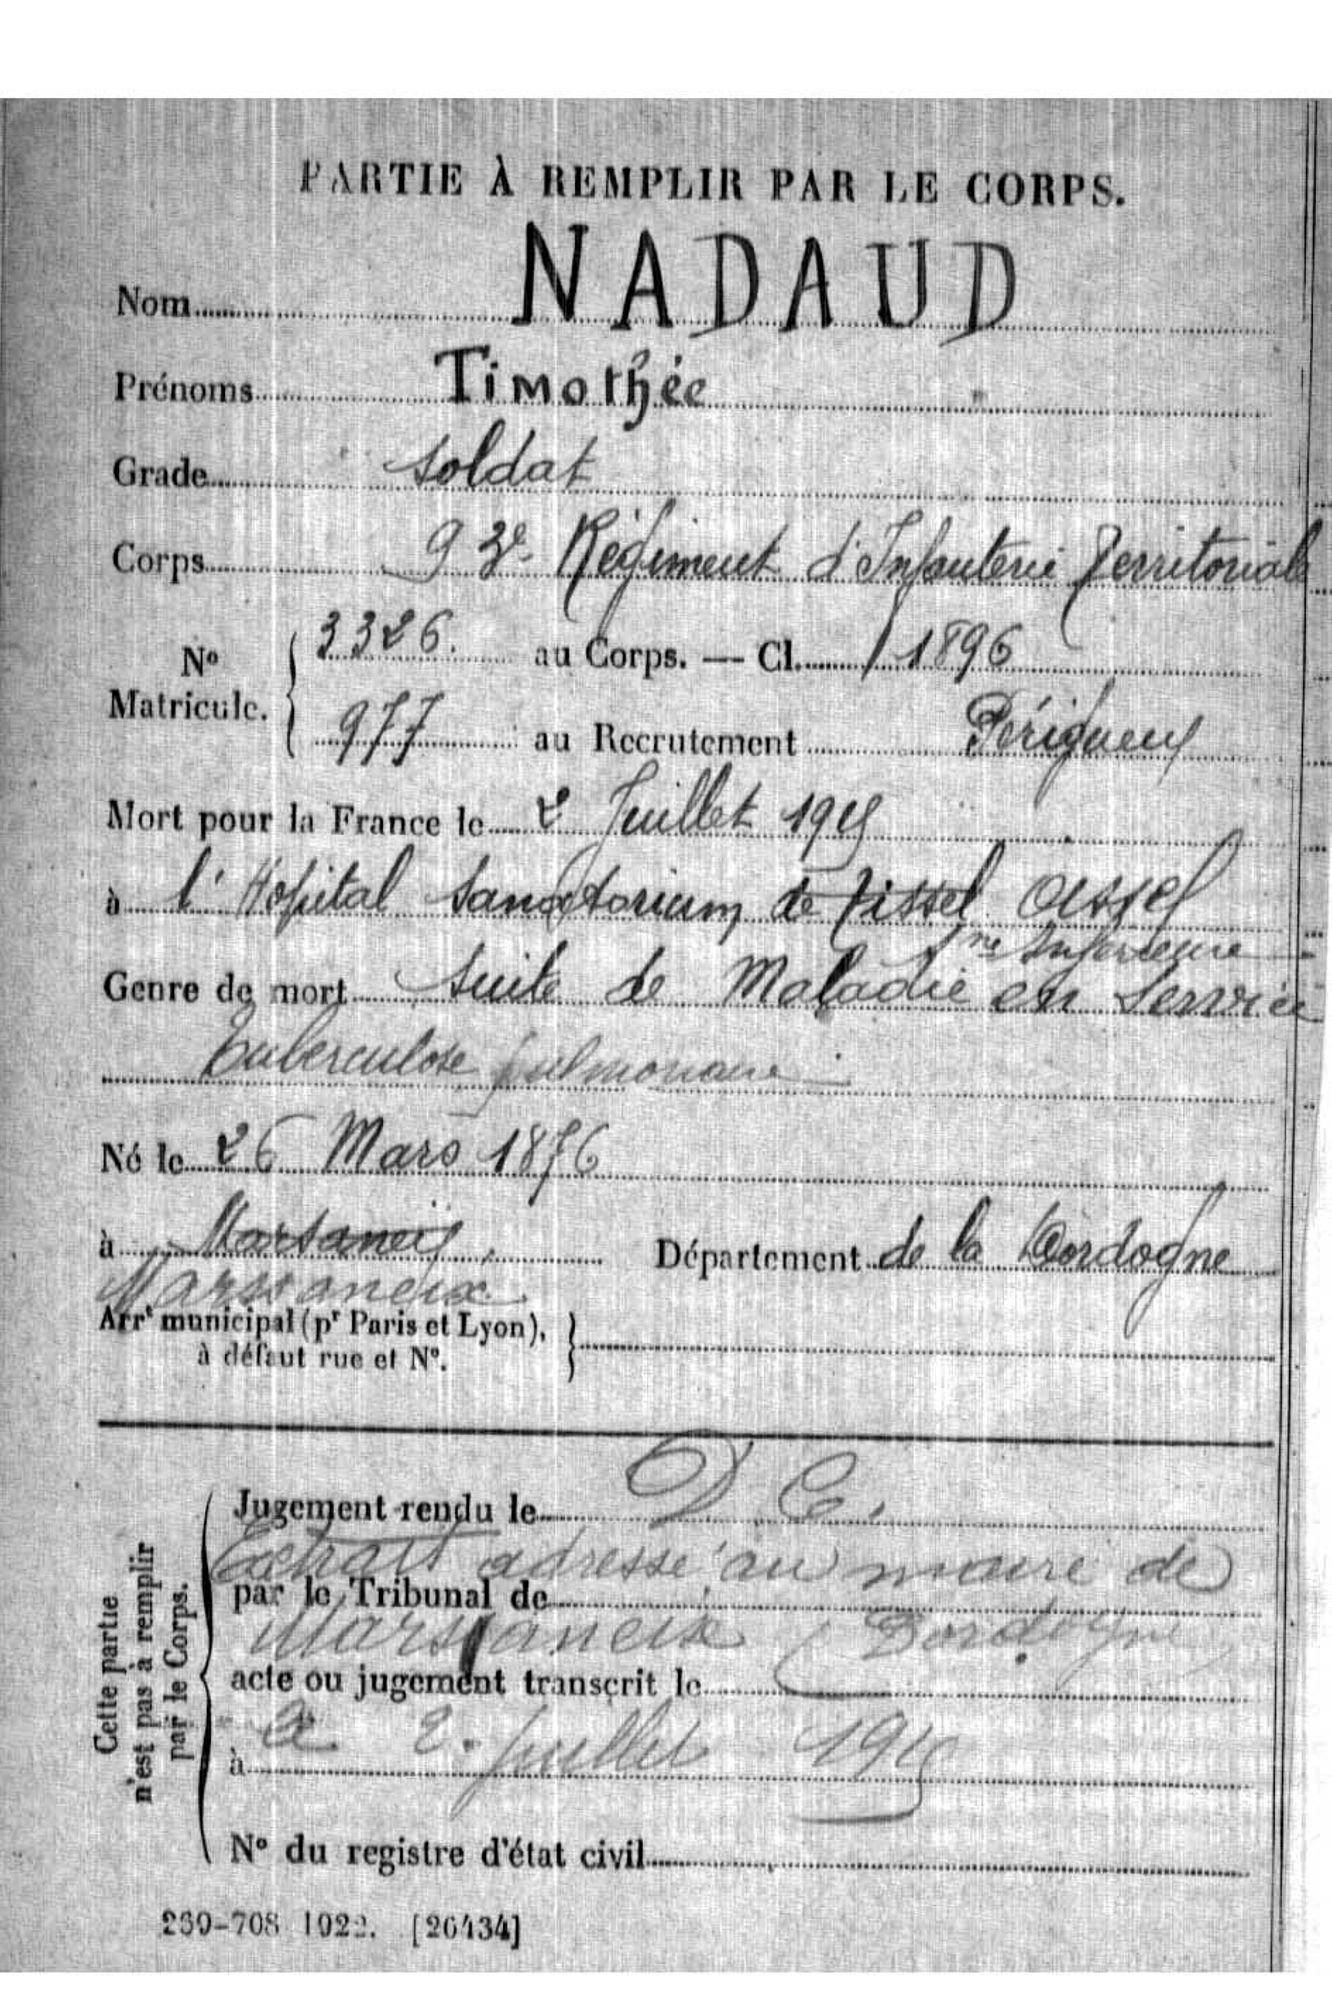 PARTIE À REMPLIR PAR LE CORPS.
Nom NADAUD
Prénoms Timothée
Grade Soldat
Corps 93e Régiment d'Infanterie Territoriale
No Matricule. 3326. au Corps. — Cl. 1896
977 au Recrutement Périgueux
Mort pour la France le 2 Juillet 1915
à l'Hôpital Sanatorium de Tissel Oissel
Sne Inférieure
Genre de mort Suite de Maladie en Service
Tuberculose pulmonaire
Né le 26 Mars 1876
à Marsaneix Département de la Dordogne
Marsaneix
Arrt municipal (pr Paris et Lyon),
à défaut rue et No.
Cette partie n'est pas à remplir par le Corps.
Jugement rendu le D. C.
Extrait adressé au maire de
par le Tribunal de
Marsaneix (Dordogne)
acte ou jugement transcrit le
Le 2 Juillet 1915
à
No du registre d'état civil
230-708 1922. [26434]